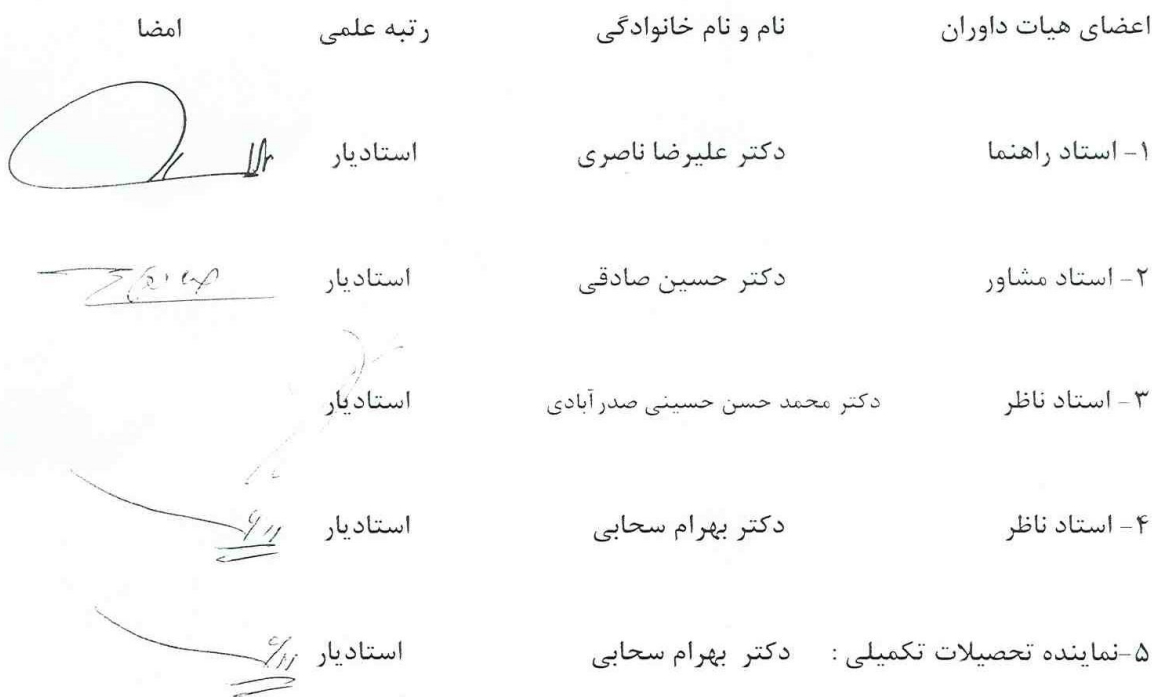 اعضای هیات داوران نام و نام خانوادگی رتبه علمی امضا
۱- استاد راهنما دکتر علیرضا ناصری استادیار
۲- استاد مشاور دکتر حسین صادقی استادیار
۳- استاد ناظر دکتر محمد حسن حسینی صدرآبادی استادیار
۴- استاد ناظر دکتر بهرام سحابی استادیار
۵-نماینده تحصیلات تکمیلی : دکتر بهرام سحابی استادیار